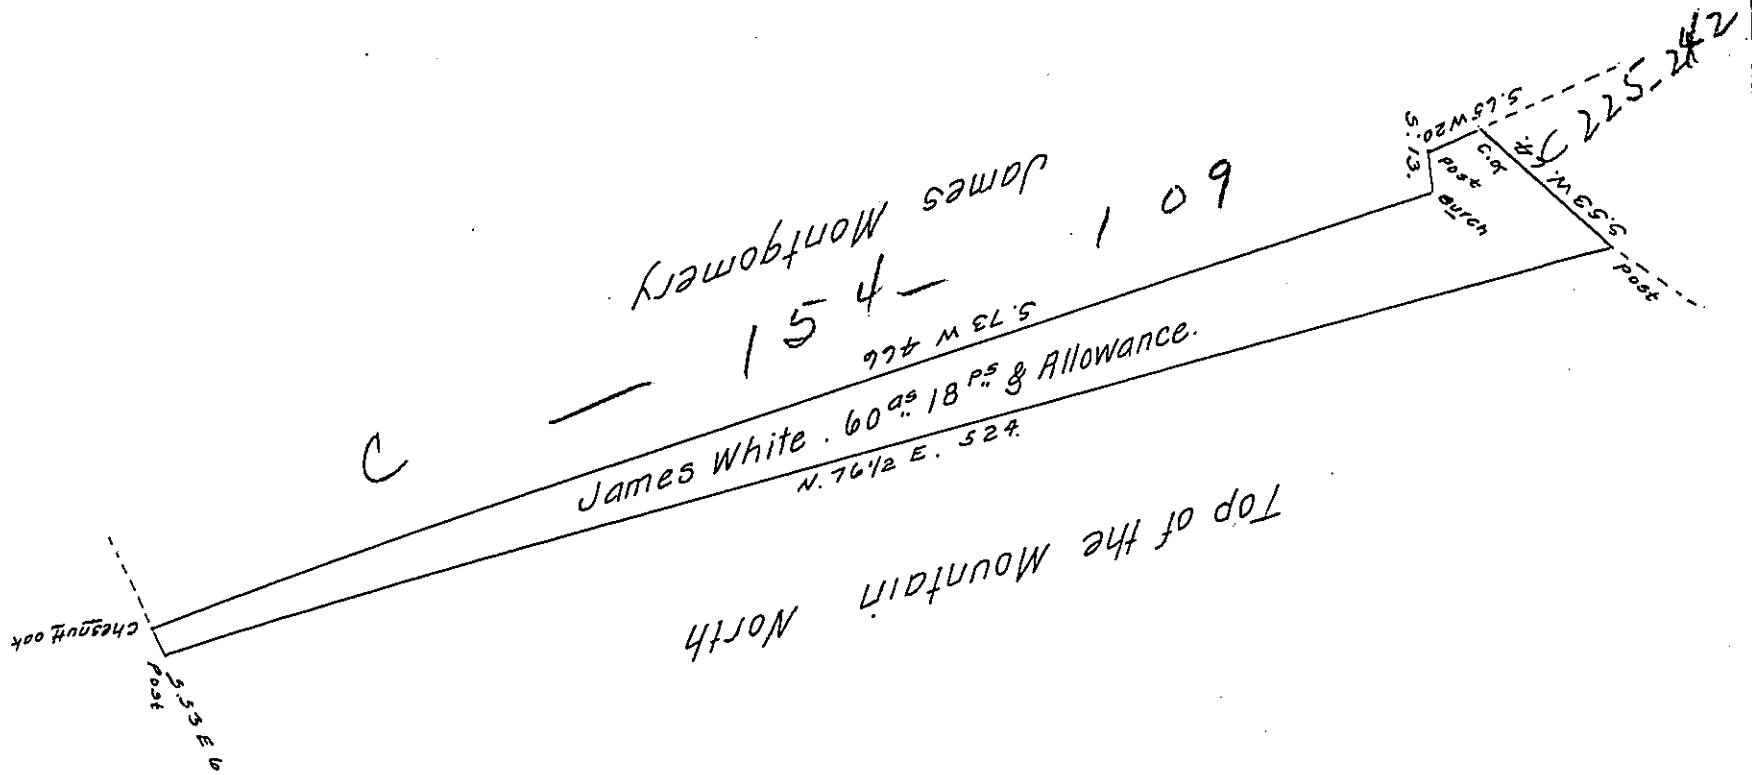 C 225-242
S.65 W 20.
S. 13.
Post
C.O
Burch
S.53 W.
Post
James Montgomery
C — 154 — 109
S.73 W 466
James White. 60 as 18 ps & Allowance.
N.76 1/2 E. 524.
Top of the Mountain North
Chesnutt oak
Post
S.53 E 6